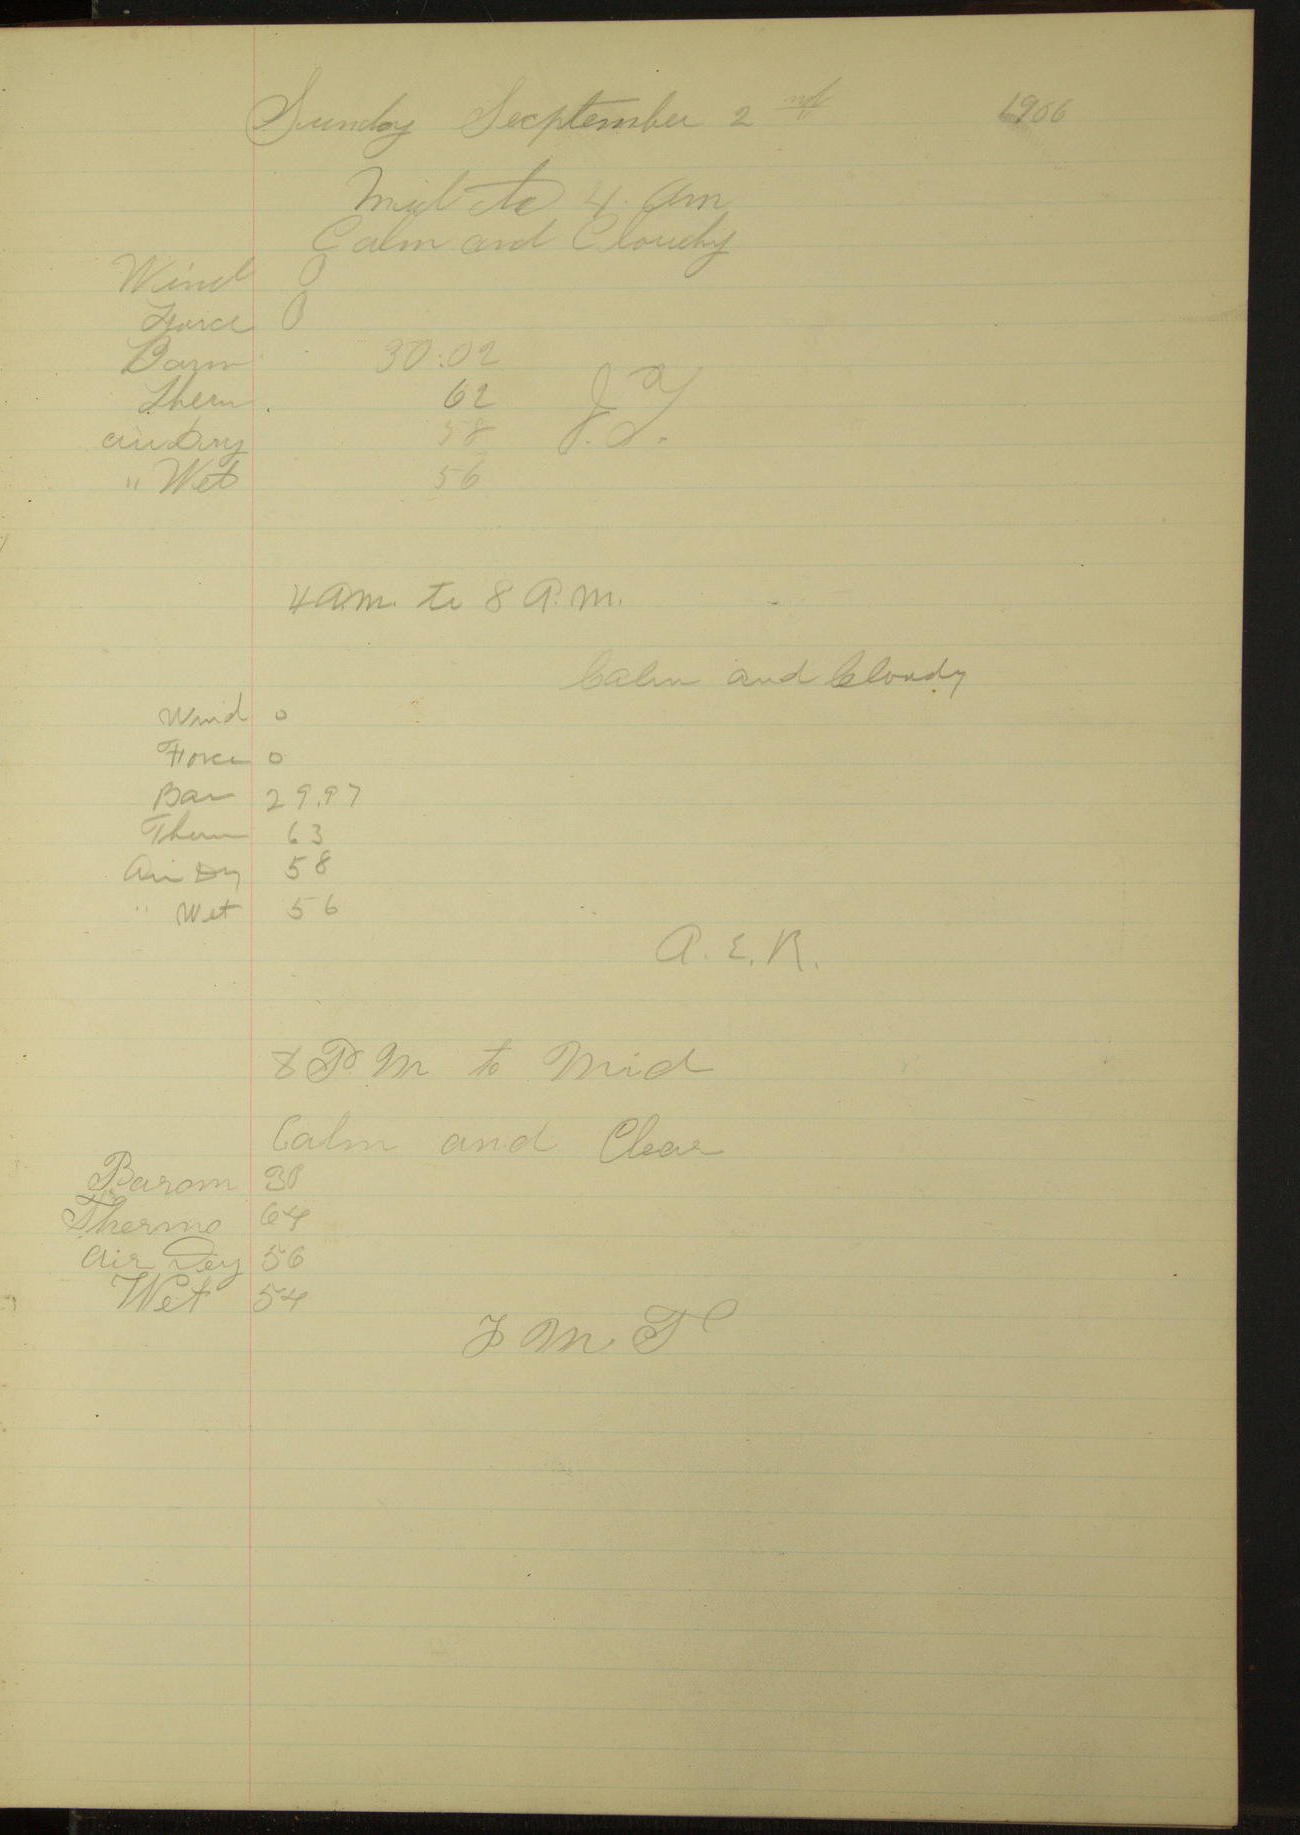 Sunday Secptember 2nd 1906
Mid to 4. am
Calm and Cloudy
Wind 0
Force 0
Barm 30.02
Therm. 62
air Dry 58
" Wet 56
J. Y.
4 a.m. to 8 A.M.
Calm and Cloudy
Wind 0
Force 0
Bar 29.97
Therm 63
Air Dry 58
" Wet 56
A. E. R.
8 P. M to Mid
Calm and Clear
Barom 30
Thermo 64
Air Dry 56
Wet 54